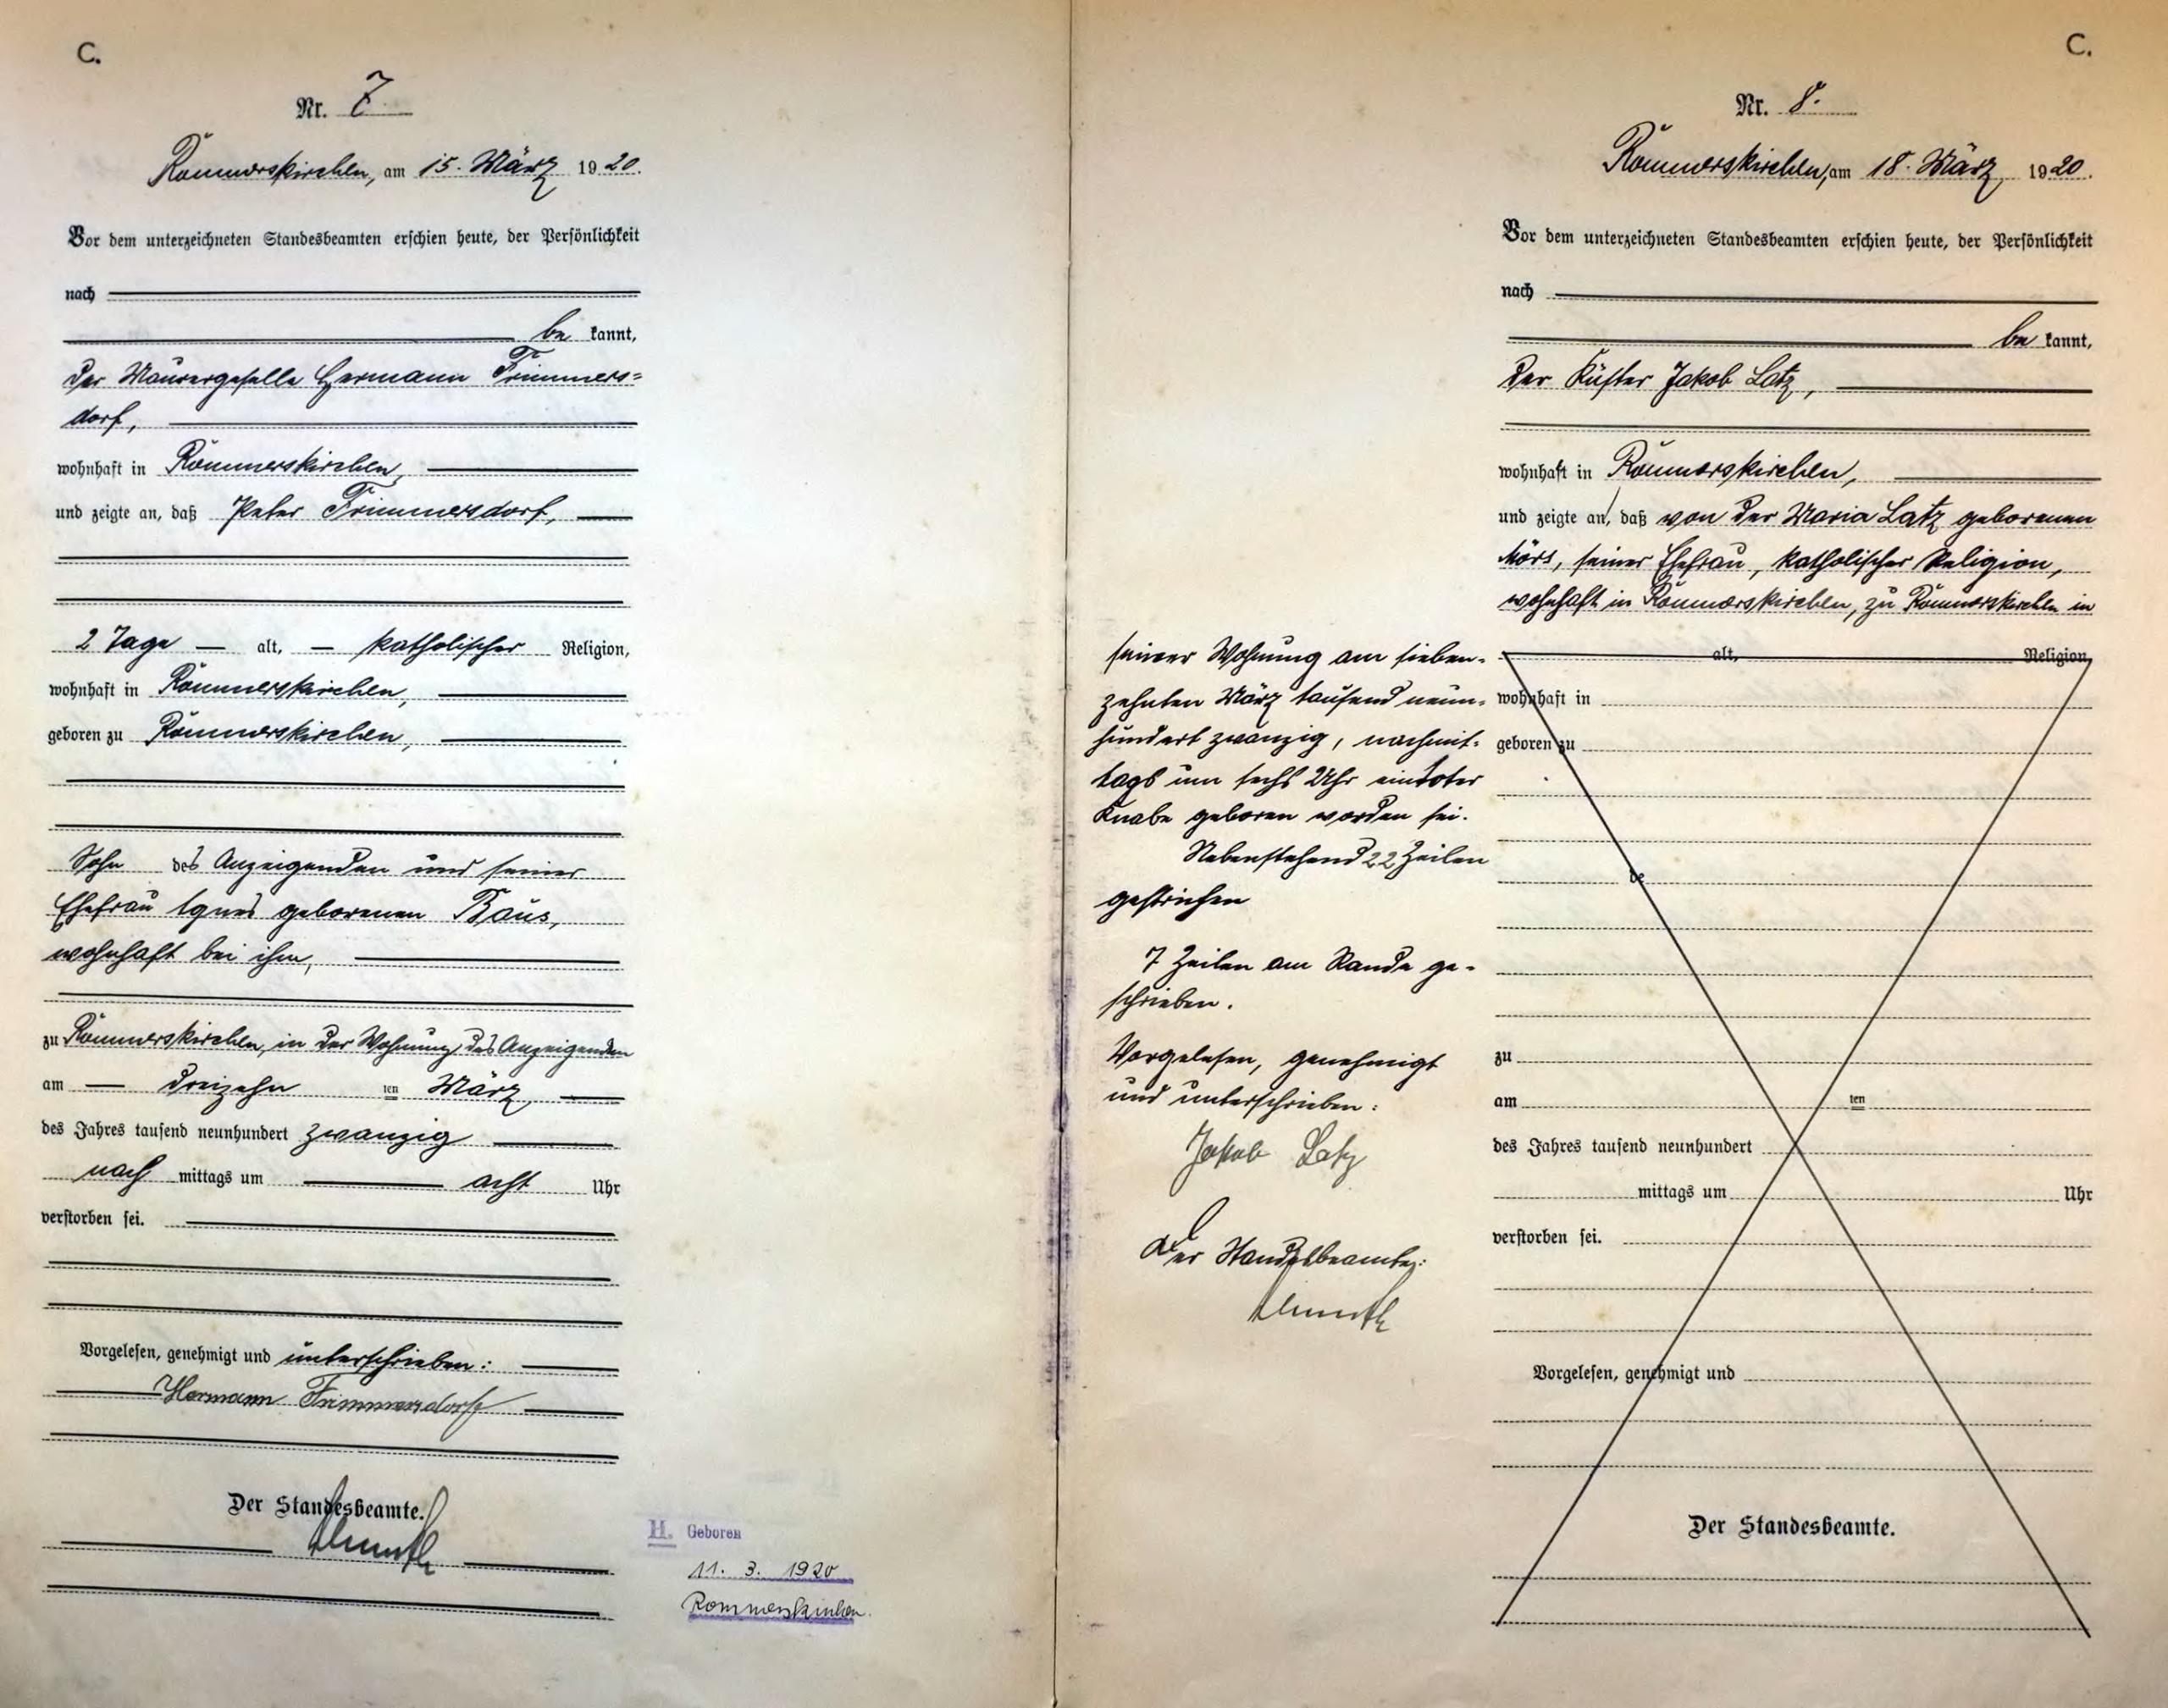 C.
Nr. 7
Rommerskirchen, am 15. März 1920.
Vor dem unterzeichneten Standesbeamten erschien heute, der Persönlichkeit
nach
be kannt,
der Maurergeselle Hermann Trimmers=
dorf,
wohnhaft in Rommerskirchen,
und zeigte an, daß Peter Trimmersdorf,
2 Tage alt, katholischer Religion,
wohnhaft in Rommerskirchen,
geboren zu Rommerskirchen,
Sohn des Anzeigenden und seiner
Ehefrau Agnes geborenen Baus,
wohnhaft bei ihm,
zu Rommerskirchen, in der Wohnung des Anzeigenden
am dreizehn ten März
des Jahres tausend neunhundert zwanzig
nach mittags um acht Uhr
verstorben sei.
Vorgelesen, genehmigt und unterschrieben:
Hermann Trimmersdorf
Der Standesbeamte.
H. Geboren
11. 3. 1920
Rommerskirchen.
C.
Nr. 8.
Rommerskirchen, am 18. März 1920.
Vor dem unterzeichneten Standesbeamten erschien heute, der Persönlichkeit
nach
be kannt,
der Küster Jakob Latz,
wohnhaft in Rommerskirchen,
und zeigte an, daß von der Maria Latz geborenen
Mörs, seiner Ehefrau, katholischer Religion,
wohnhaft in Rommerskirchen, zu Rommerskirchen in
seiner Wohnung am sieben-
zehnten März tausend neun-
hundert zwanzig, nachmit-
tags um sechs Uhr ein toter
Knabe geboren worden sei.
Nebenstehend 22 Zeilen
gestrichen
7 Zeilen am Rande ge-
schrieben.
Vorgelesen, genehmigt
und unterschrieben:
Jakob Latz
Der Standesbeamte:
alt, Religion,
wohnhaft in
geboren zu
de
zu
am ten
des Jahres tausend neunhundert
mittags um Uhr
verstorben sei.
Vorgelesen, genehmigt und
Der Standesbeamte.